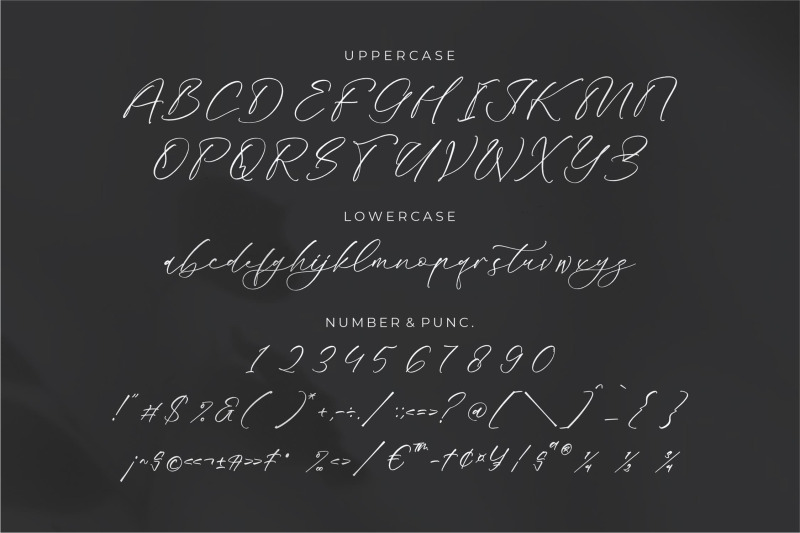 UPPERCASE
ABCDEFGHIJKMN
OPQRSTUVWXYZ
LOWERCASE
abcdefghijklmnopqrstuvwxyz
NUMBER & PUNC.
1 2 3 4 5 6 7 8 9 0
!"#$%&()*+,-÷./:;<=>?@[\]^_`{}
¡~§©«¬±»° ‰<>/€™-†¢¤¥|§ª® ¼ ½ ¾